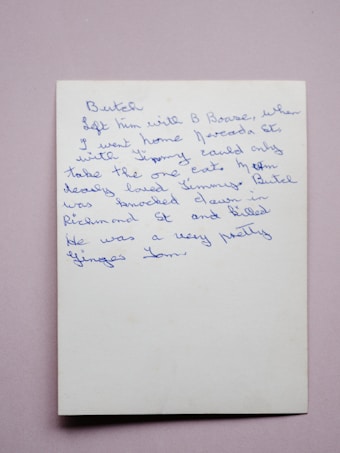 Butch
Left him with B Boase, when
I went home Nercada Sts
with Timmy could only
take the one cat. Mum
dearly loved Timmy. Butch
was knocked down in
Richmond St and killed
He was a very pretty
Ginger Tom